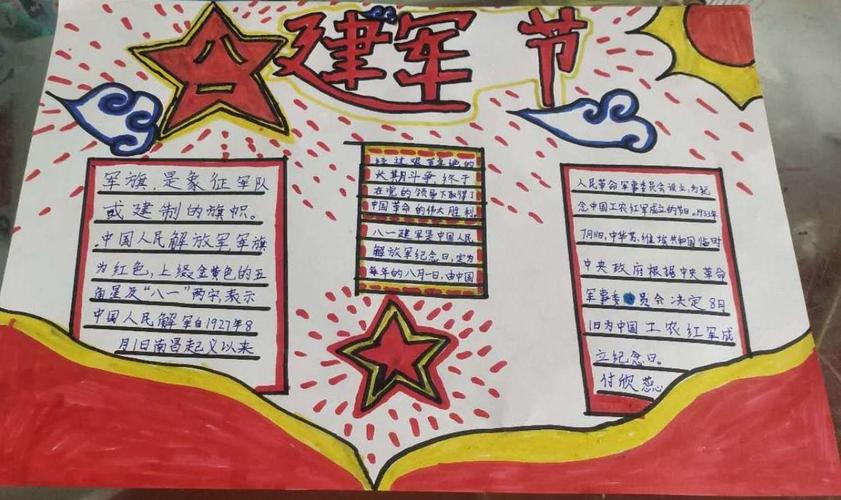 八一
建军节
军旗，是象征军队
或建制的旗帜。
中国人民解放军军旗
为红色，上缀金黄色的五
角星及“八一”两字，表示
中国人民解军自1927年8
月1日南昌起义以来
经过艰苦卓绝的
长期斗争终于
在党的领导下取得了
中国革命的伟大胜利
八一建军是中国人民
解放军纪念日，定为
每年的八月一日，由中国
人民革命军事委员会设立，为纪
念中国工农红军成立的节日。1933年
7月11日，中华苏维埃共和国临时
中央政府根据中央革命
军事委员会决定8月
1日为中国工农红军成
立纪念日。
付欣蕊